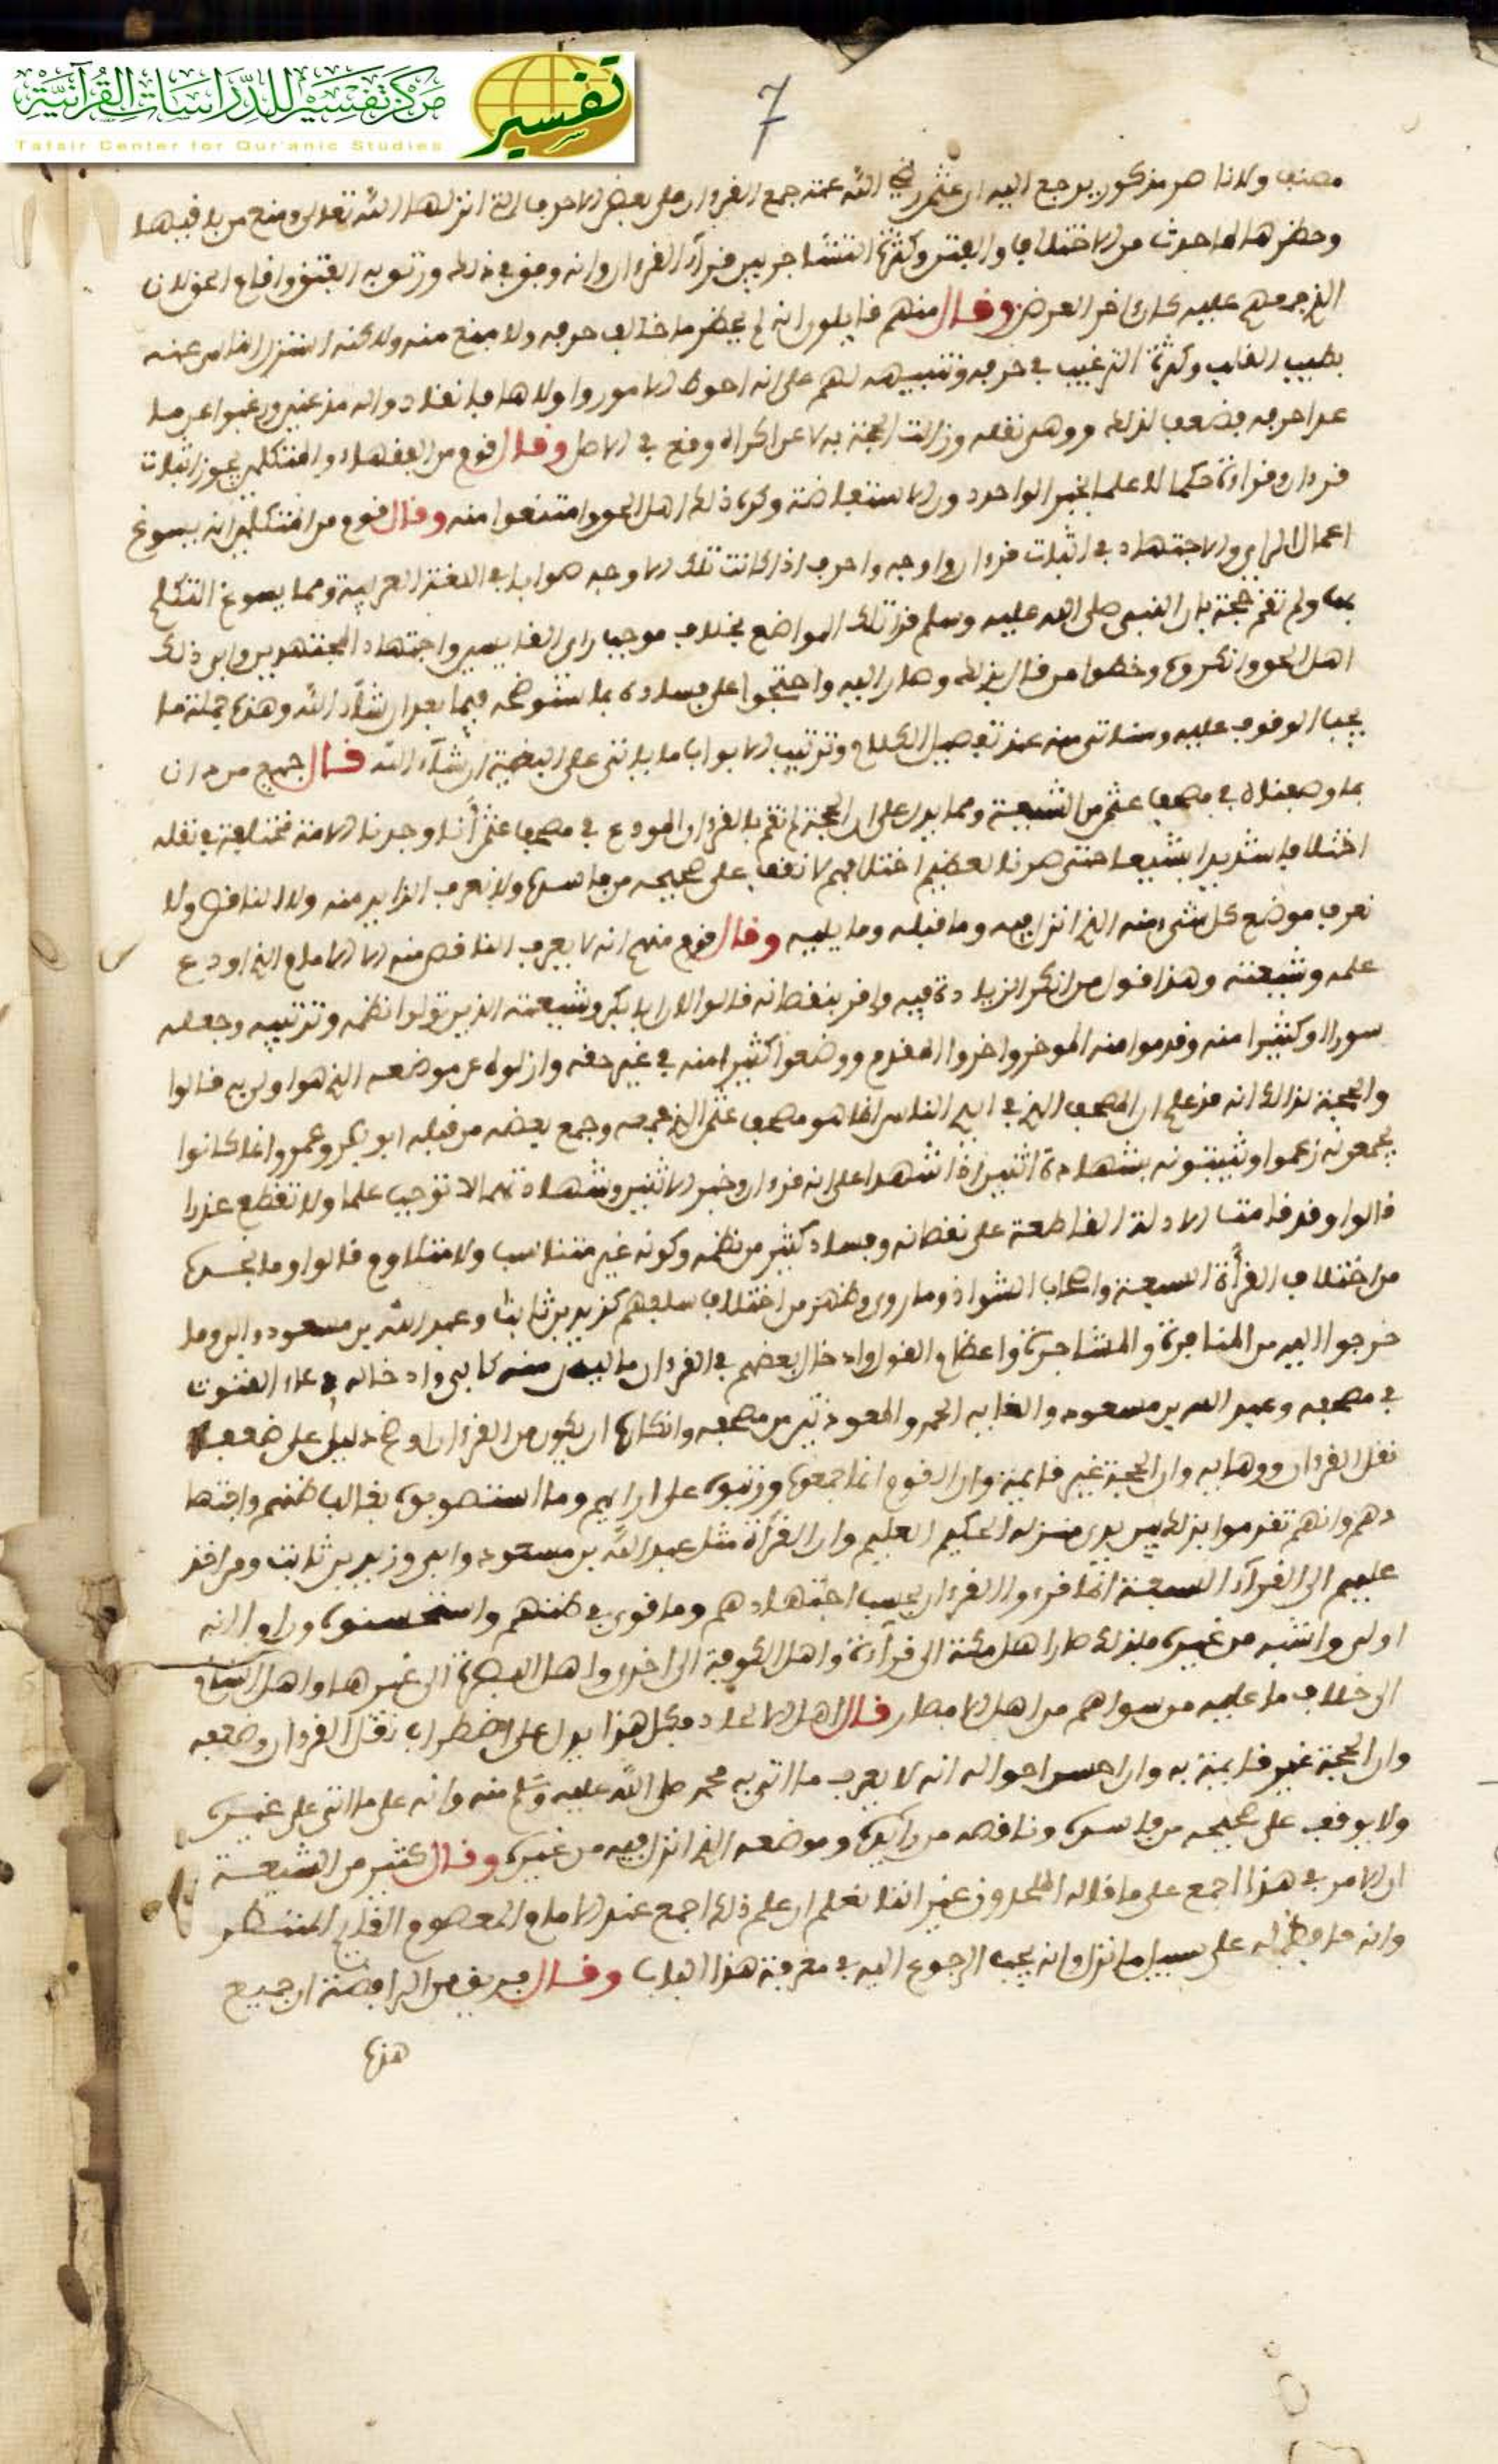 مركز تفسير للدراسات القرآنية
Tafsir Center for Qur'anic Studies
تفسير
7
ولا ناصر مذكور يرجع اليه ان عثمن رضي الله عنه جمع القرءان على بعض الاحرف التي انزلها الله تعلى ومنع من باقيها
وحظرها لما حدث من الاختلاف والفتن وكثرة التشاجر بين قرآء القرءان وانه وفق في ذلك ورتق به الفتق واقام
الذي جمعهم عليه كان اخر العرض وقال منهم قايلون انه لم يحظر ما خالف حرفه ولا منع منه ولاكنه استنزل الناس عنه
بطيب وكثرة الترغيب في حرفه وتنبيهه لهم على انه احوط الامور واولاها فانقادوا له ورغبوا عن ما
عدا حرفه فضعف لذلك ووهى نقله وزالت الحجة به لا عن اكراه وقع في الاصل وقال قوم من الفقهاء والمتكلمين يجوز اثبات
قرءان وقراءة حكما لا علما بخبر الواحد دون الاستفاضة وكره ذلك اهل الحق وامتنعوا منه وقال قوم من المتكلمين انه يسوغ
اعمال الراي والاجتهاد في اثبات قرءان واوجه واحرف اذا كانت تلك الاوجه صوابا في اللغة العربية ومما يسوغ التكلم
بها ولم تقم حجة بان النبي صلى الله عليه وسلم قرا تلك المواضع بخلاف موجب راي القايسين واجتهاد المجتهدين وابى ذلك
اهل الحق وانكروه وخطوا من قال بذلك وصار اليه واحتجوا على فساده بما سنوضحه فيما بعد ان شآء الله وهذه جملة ما
يجب الوقوف عليه وسناتي منه عند تفصيل الكلام وترتيب الابواب ما ياتي على البغية ان شآء الله قال جميع من دان
بما وصفناه في مصحف عثمن من الشيعة ومما يدل على ان الحجة لم تقم بالقرءان المودع في مصحف عثمن انا وجدنا الامة مختلفة في نقله
اختلافا شديدا شنيعا حتى صرنا لعظيم اختلافهم لا نقف على صحيحه من فاسده ولا نعرف الزايد منه ولا الناقص ولا
نعرف موضع كل شيء منه الذي انزل فيه وما قبله وما يليه وقال قوم منهم انه لا يعرف الناقص منه الا الامام الذي اودع
علمه وشيعته وهذا قول من انكر الزيادة فيه واقر بنقصانه قالوا لان ابا بكر وشيعته الذين تولوا نظمه وترتيبه وجعله
سورا وكثيرا منه وقدموا منه الموخر واخروا المقدم ووضعوا كثيرا منه في غير حقه وازالوه عن موضعه الذي هو اولى به قالوا
والحجة لذلك انه قد علم ان المصحف الذي في ايدي الناس انما هو مصحف عثمن الذي جمعه وجمع بعضه من قبله ابو بكر وعمر وانما كانوا
يجمعونه زعموا ويثبتونه بشهادة اثنين اذا شهدا على انه قرءان وخبر الاثنين وشهادتهما لا توجب علما ولا تقطع عذرا
قالوا وقد قامت الادلة القاطعة على نقصانه وفساد كثير من نظمه وكونه غير متناسب ولا متلاوم قالوا وما
من اختلاف القرأة السبعة واصحاب الشواذ وما روي وظهر من اختلاف سلفهم كزيد بن ثابت وعبد الله بن مسعود وابي وما
خرجوا اليه من المنافرة والمشاجرة واعظام القول وادخال بعضهم في القرءان ما ليس منه كابي وادخاله دعاء القنوت
في مصحفه وعبد الله بن مسعود والغايه الحمد والمعوذتين من مصحفه وانكاره ان يكون من القرءان اوضح دليل على ضعف
نقل القرءان ووهايه وان الحجة غير قايمة وان القوم انما جمعوه ورتبوه على ارايهم وما استصوبوه بغالب ظنهم واجتها
دهم وانهم تقدموا بذلك بين يدي منزله الحكيم العليم وان القرأة مثل عبد الله بن مسعود وابي وزيد بن ثابت ومن اخذ
عليهم الى القرآء السبعة انما قرءوا القرءان بحسب اجتهادهم وما قوي في ظنهم واستحسنوه وراوا انه
اولى واشبه من غيره فلذلك صار اهل مكة الى قرآءة واهل الكوفة الى اخرى واهل البصرة الى غيرها واهل الشام
الى خلاف ما عليه من سواهم من اهل الامصار قال اهل الالحاد فكل هذا يدل على اضطراب نقل القرءان وضعفه
وان الحجة غير قايمة به وان احسن احواله انه لا يعرف ما اتى به محمد صلى الله عليه وسلم منه وانه على ما اتى على غيره
ولا يوقف على صحيحه من فاسده وناقصه من زايده وموضعه الذي انزل فيه من غيره وقال كثير من الشيعة
ان الامر في هذا اجمع على ما قاله الملحدون غير انا نعلم ان علم ذلك اجمع عند الامام المعصوم القايم المنتظر
وانه حافظ له على سبيل ما انزل وانه يجب الرجوع اليه في معرفة هذا الباب وقال فريق من الرافضة ان جميع
هذه